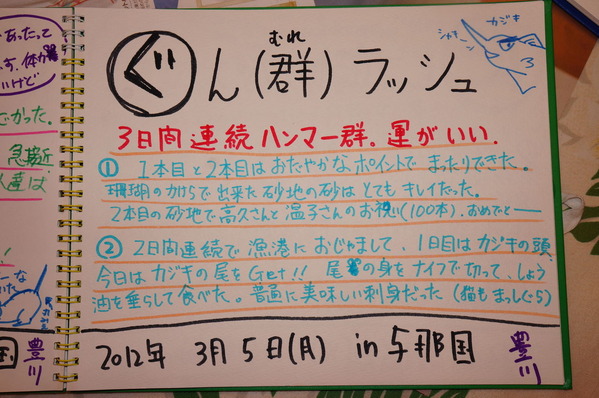 あったって
いけど
むれ
ぐん(群)ラッシュ
カジキ
シャキーン
3日間連続ハンマー群。運がいい.
でかった。
急接近
① 1本目と2本目はおだやかなポイントでまったりできた。
珊瑚のかけらで出来た砂地の砂はとてもキレイだった。
2本目の砂地で高久さんと温子さんのお祝い(100本).おめでとー
② 2日間連続で漁港におじゃまして、1日目はカジキの頭、
今日はカジキの尾をGet!! 尾の身をナイフで切って、しょう
油を垂らして食べた。普通に美味しい刺身だった(猫もまっしぐら)
豊川
2012年 3月5日(月) in 与那国 豊川